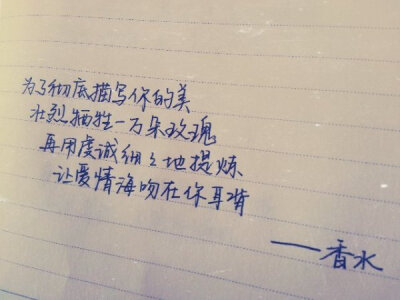 为了彻底描写你的美
壮烈牺牲一万朵玫瑰
再用虔诚细々地提炼
让爱情海吻在你耳背
——香水